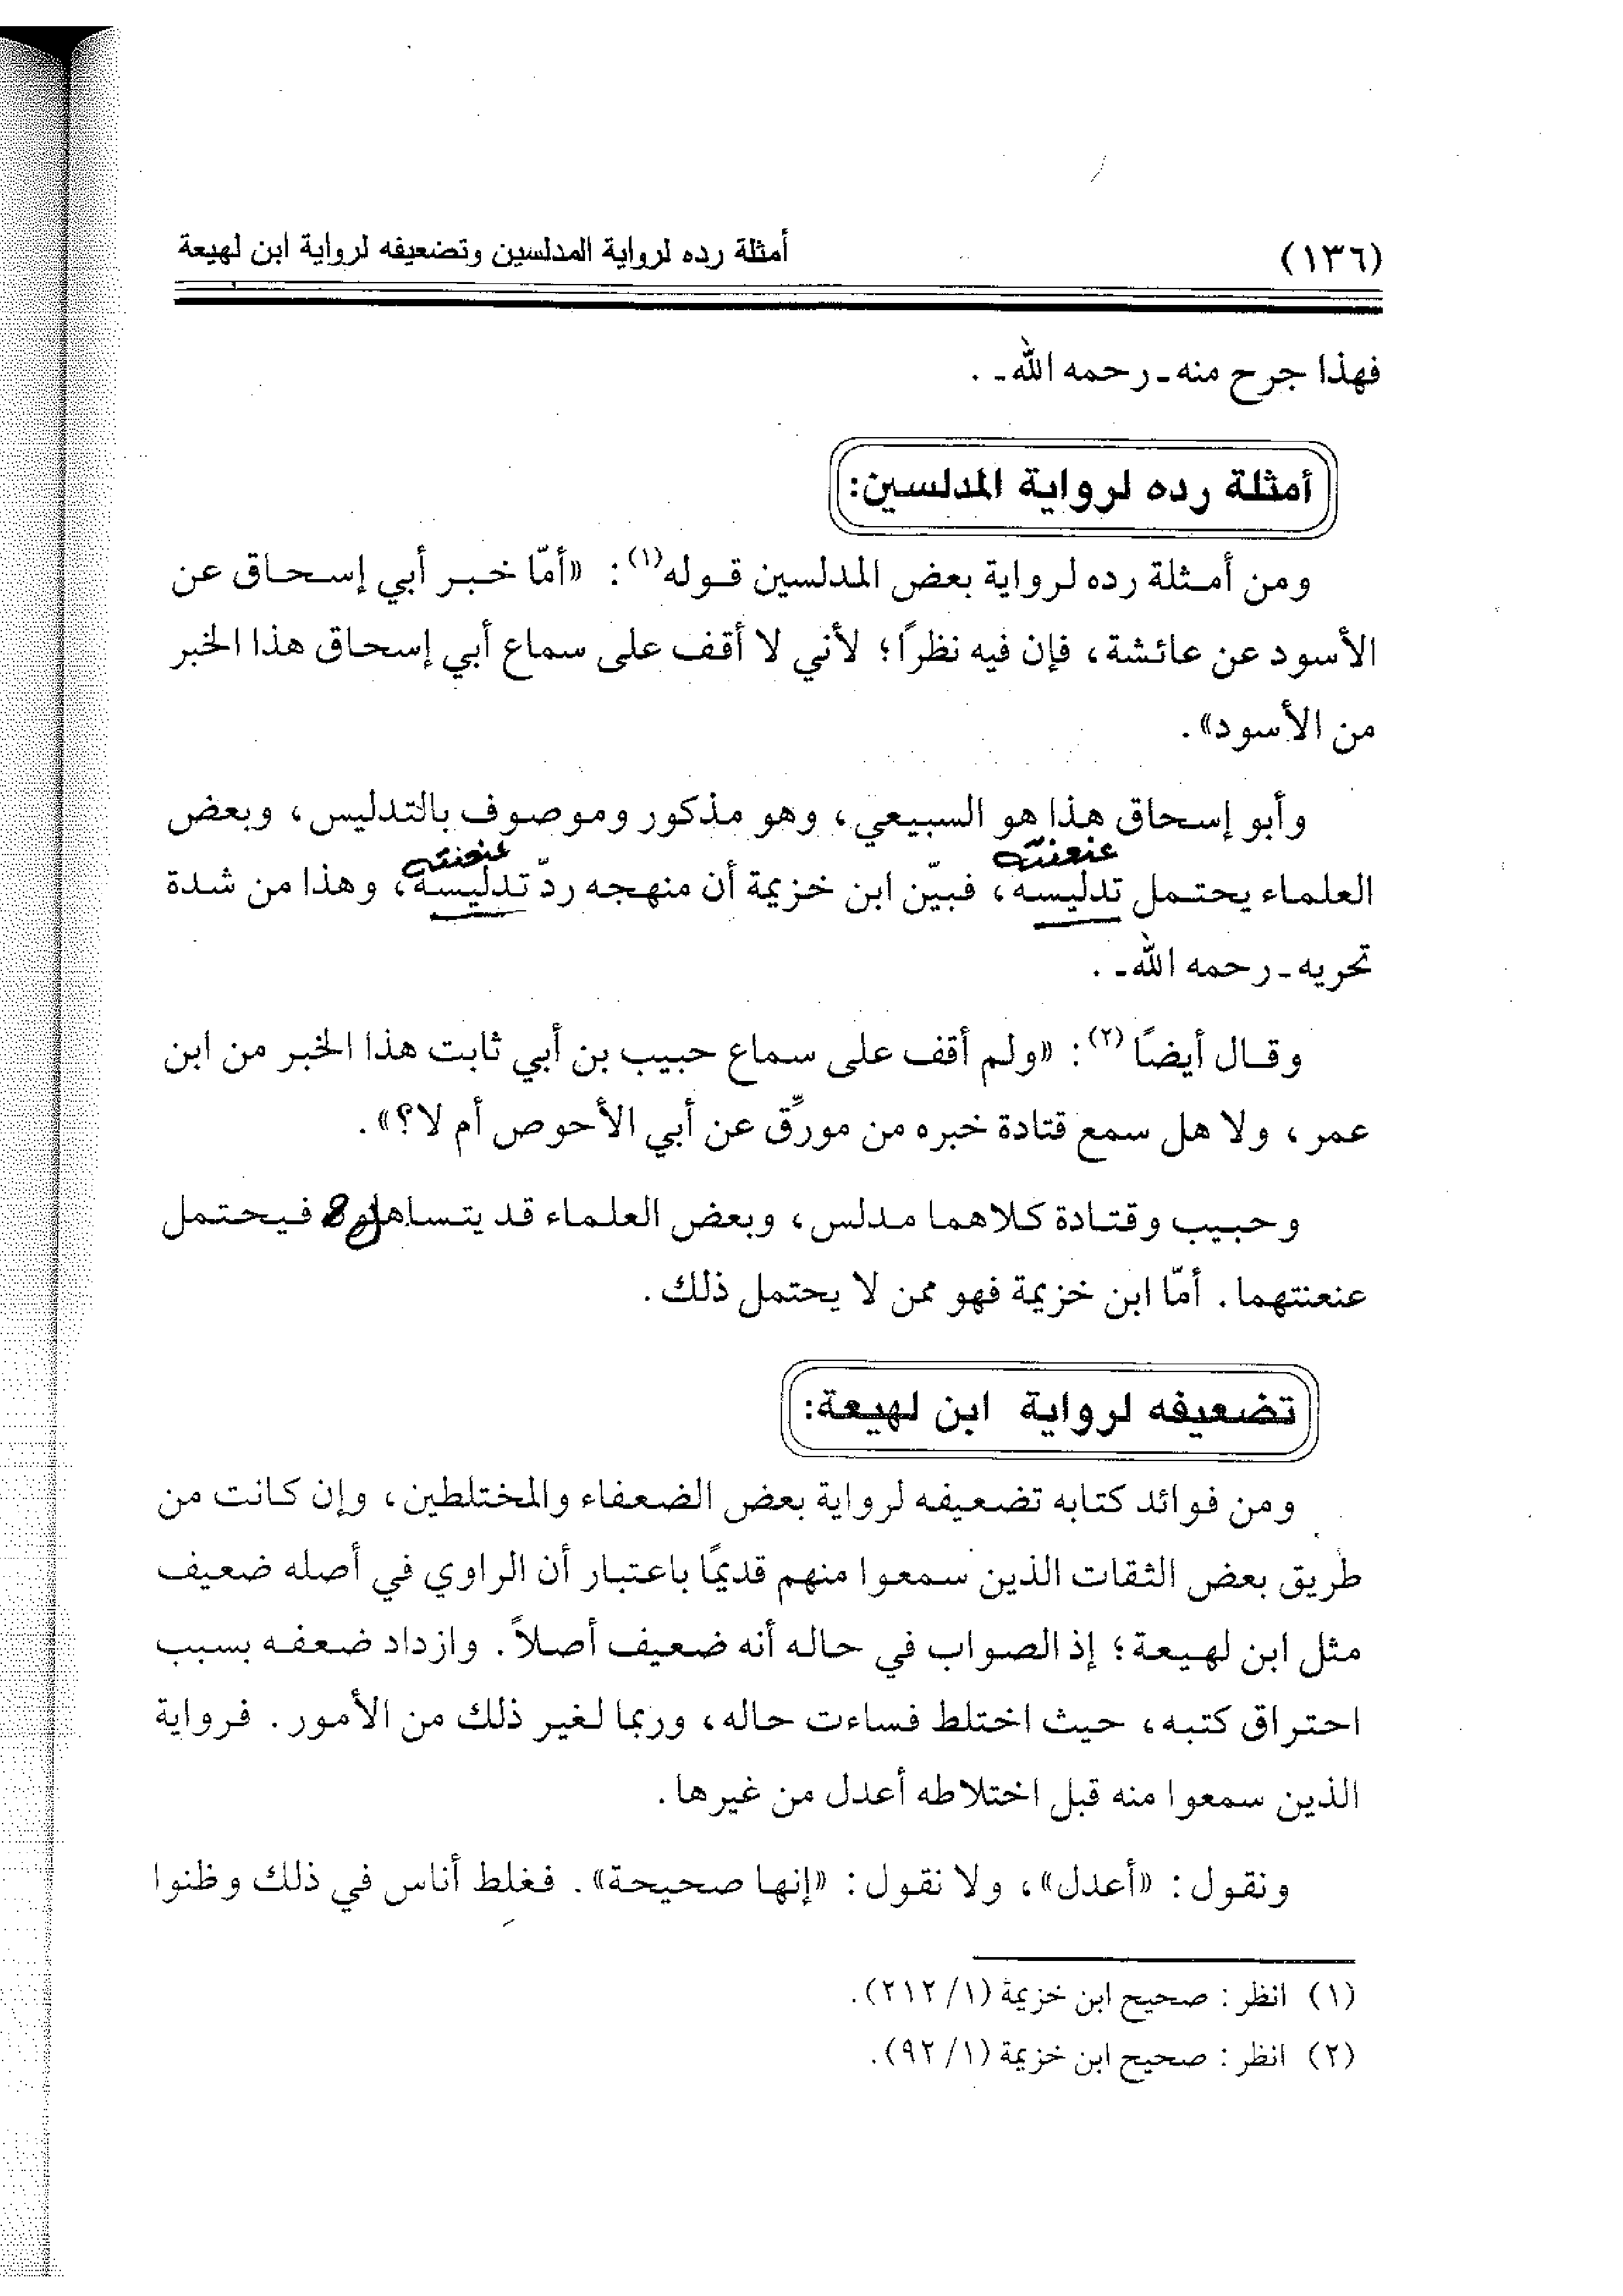 (١٣٦)
أمثلة رده لرواية المدلسين وتضعيفه لرواية ابن لهيعة
فهذا جرح منه ـ رحمه الله ـ .
أمثلة رده لرواية المدلسين:
ومن أمثلة رده لرواية بعض المدلسين قوله(١): «أمّا خبر أبي إسحاق عن
الأسود عن عائشة، فإن فيه نظرًا؛ لأني لا أقف على سماع أبي إسحاق هذا الخبر
من الأسود».
وأبو إسحاق هذا هو السبيعي، وهو مذكور وموصوف بالتدليس، وبعض
عنعنته عنعنته
العلماء يحتمل تدليسه، فبيّن ابن خزيمة أن منهجه ردّ تدليسه، وهذا من شدة
تحريه ـ رحمه الله ـ .
وقال أيضًا(٢): «ولم أقف على سماع حبيب بن أبي ثابت هذا الخبر من ابن
عمر، ولا هل سمع قتادة خبره من مورِّق عن أبي الأحوص أم لا؟».
وحبيب وقتادة كلاهما مدلس، وبعض العلماء قد يتساهل فيحتمل
عنعنتهما. أمّا ابن خزيمة فهو ممن لا يحتمل ذلك.
تضعيفه لرواية ابن لهيعة:
ومن فوائد كتابه تضعيفه لرواية بعض الضعفاء والمختلطين، وإن كانت من
طريق بعض الثقات الذين سمعوا منهم قديمًا باعتبار أن الراوي في أصله ضعيف
مثل ابن لهيعة؛ إذ الصواب في حاله أنه ضعيف أصلاً. وازداد ضعفه بسبب
احتراق كتبه، حيث اختلط فساءت حاله، وربما لغير ذلك من الأمور. فرواية
الذين سمعوا منه قبل اختلاطه أعدل من غيرها.
ونقول: «أعدل»، ولا نقول: «إنها صحيحة». فغلط أناس في ذلك وظنوا
(١) انظر: صحيح ابن خزيمة (١/ ٢١٢).
(٢) انظر: صحيح ابن خزيمة (١/ ٩٢).